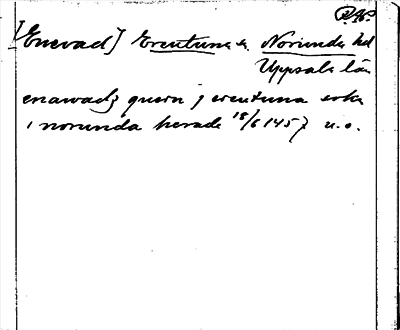 [Enevad] Erentuna sn Norunda hd
Uppsala län
enawadz quern j erentuna sokn
i norunda herade 18/6 1457 u.o.